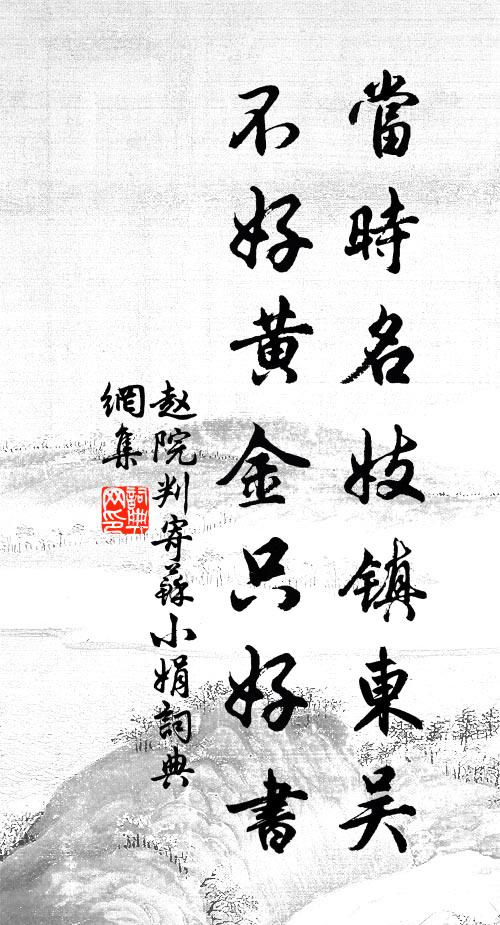 當時名妓镇東吴
不好黄金只好書
赵院判寄蘇小娟詞典
網集
詞典網印